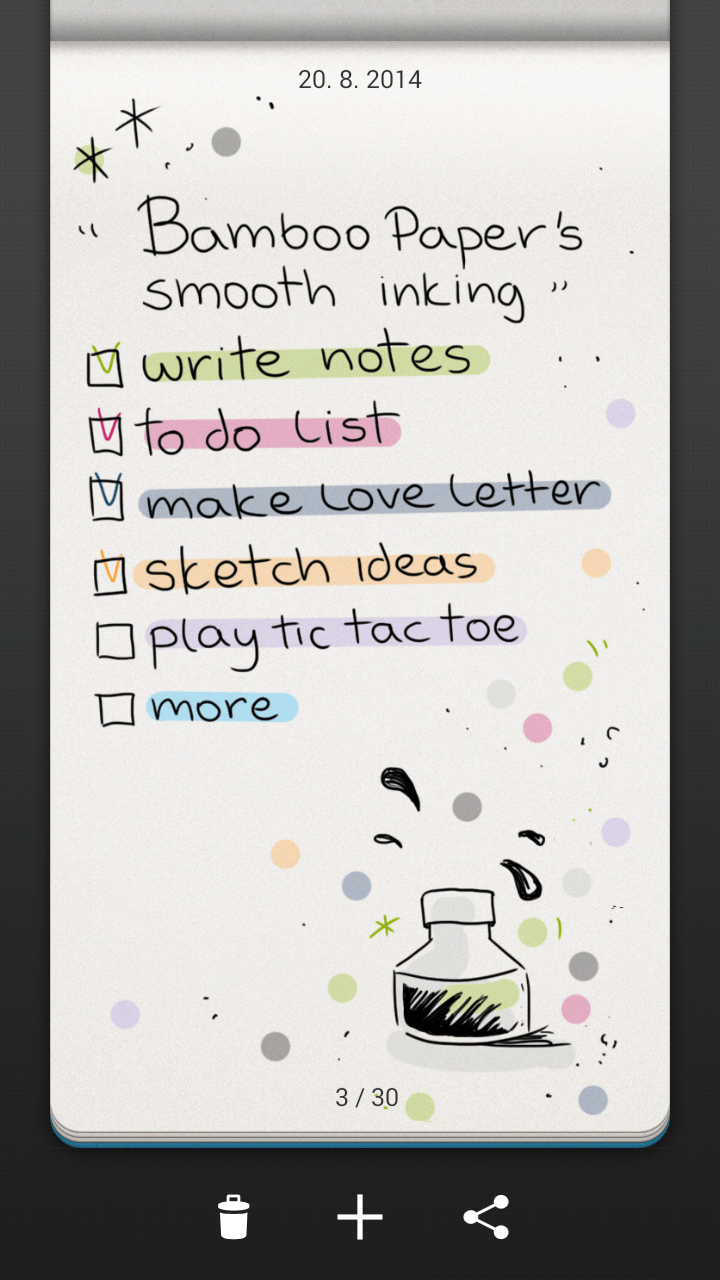 20. 8. 2014
“ Bamboo Paper's
smooth inking ”
write notes
to do list
make love letter
sketch ideas
play tic tac toe
more
3 / 30